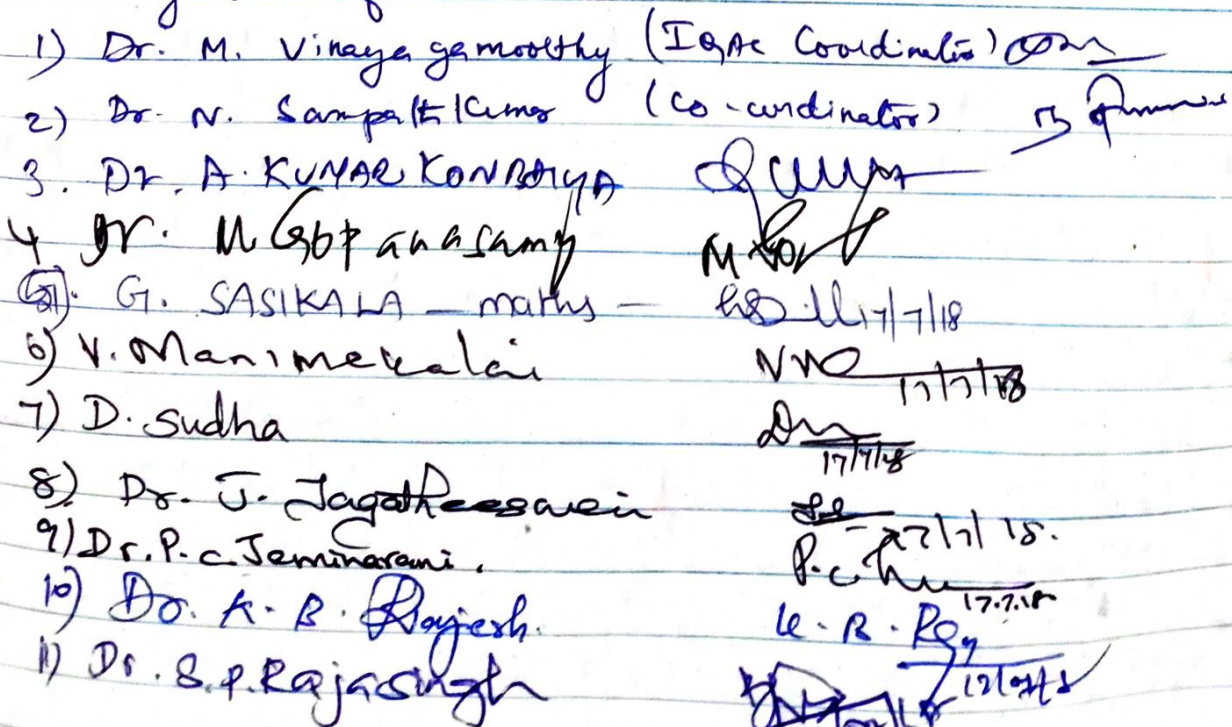 1) Dr. M. Vinayagamoorthy (IQAC Coordinator)
2) Dr. N. Sampath Kumar (Co-ordinator)
3. Dr. A. KUMAR KONDAIYA
4 Dr. M
G. SASIKALA – maths – 17/7/18
6) V. Manimekalai 17/7/18
7) D. Sudha 17/7/18
8) Dr. J. Jagatheeswari
9) Dr. P. C. Jeminarani. P.C 17.7.18
10) Dr. K. B. Rajesh. K. B. Raj
11) Dr. S. P. Rajasingh